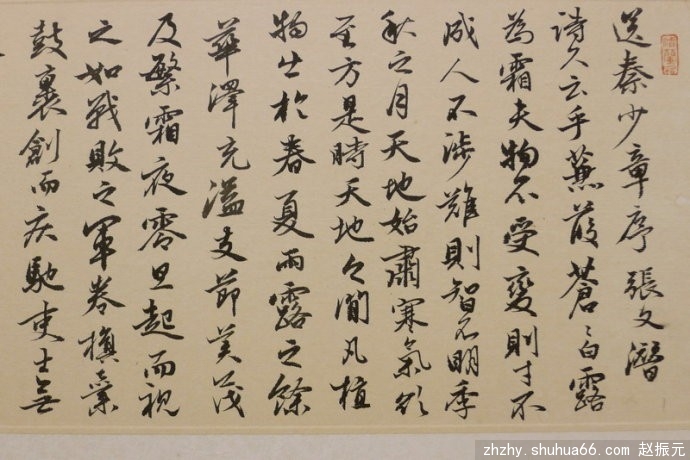 送秦少章序 張文潛
詩不云乎蒹葭蒼々白露
為霜夫物不受變則才不
成人不涉難則智不明季
秋之月天地始肅寒氣欲
至方是時天地之間凡植
物出於春夏雨露之餘
華澤充溢支節美茂
及繁霜夜零旦起而視
之如戰敗之軍卷旗棄
鼓裹創而疾馳吏士無
zhzhy.shuhua66.com 赵振元